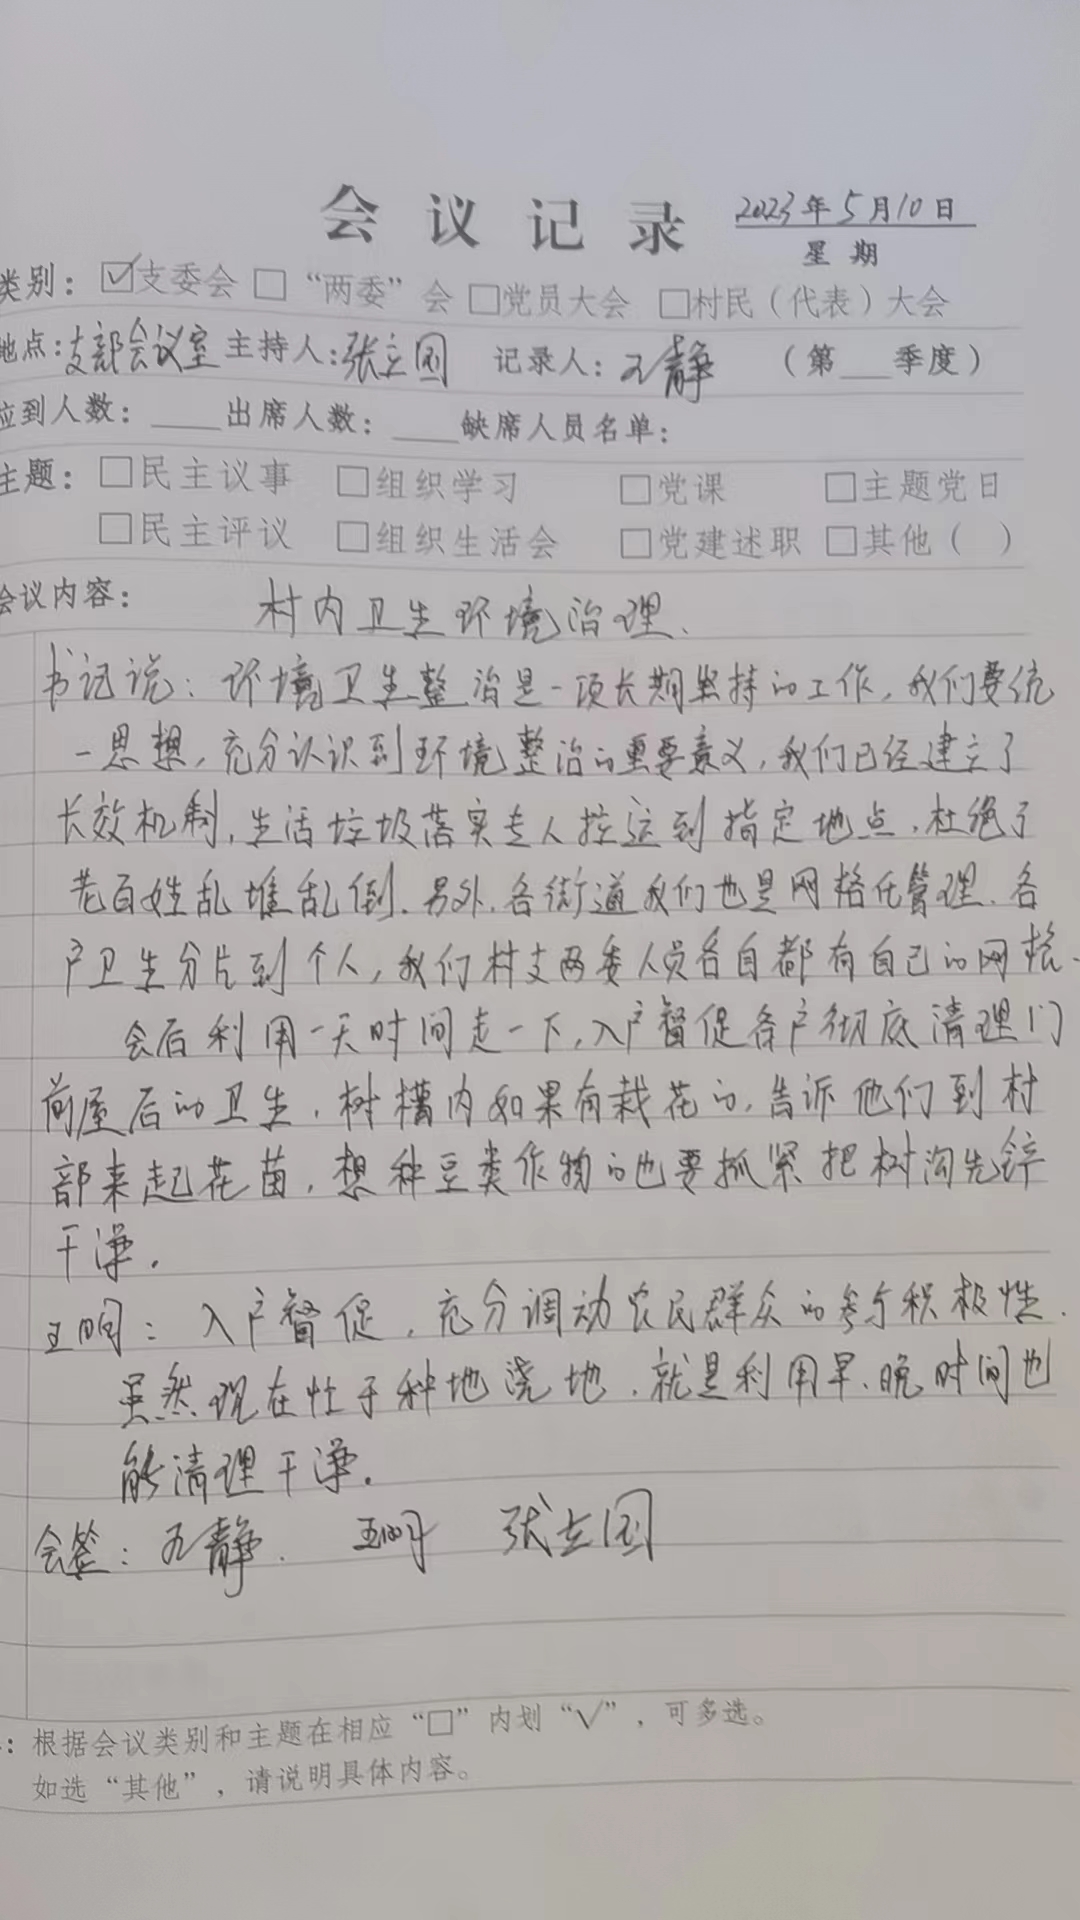 会议记录 2023年5月10日
星期
类别：☑支委会 □“两委”会 □党员大会 □村民（代表）大会
地点：支部会议室 主持人：张立国 记录人：静 （第___季度）
应到人数：____出席人数：____缺席人员名单：
主题：□民主议事 □组织学习 □党课 □主题党日
□民主评议 □组织生活会 □党建述职 □其他（ ）
会议内容： 村内卫生环境治理.
书记说：环境卫生整治是一项长期坚持的工作，我们要统
一思想，充分认识到环境整治的重要意义，我们已经建立了
长效机制，生活垃圾落实专人拉运到指定地点，杜绝了
老百姓乱堆乱倒.另外.各街道我们也是网格化管理.各
户卫生分片到个人，我们村支两委人员各自都有自己的网格.
会后利用一天时间走一下，入户督促各户彻底清理门
前屋后的卫生，树槽内如果有栽花的，告诉他们到村
部来起花苗，想种豆类作物的也要抓紧把树沟先
干净.
王明：入户督促，充分调动农民群众的参与积极性.
虽然现在忙于种地浇地，就是利用早、晚时间也
能清理干净.
会签：静. 王明 张立国
：根据会议类别和主题在相应“□”内划“√”，可多选。
如选“其他”，请说明具体内容。